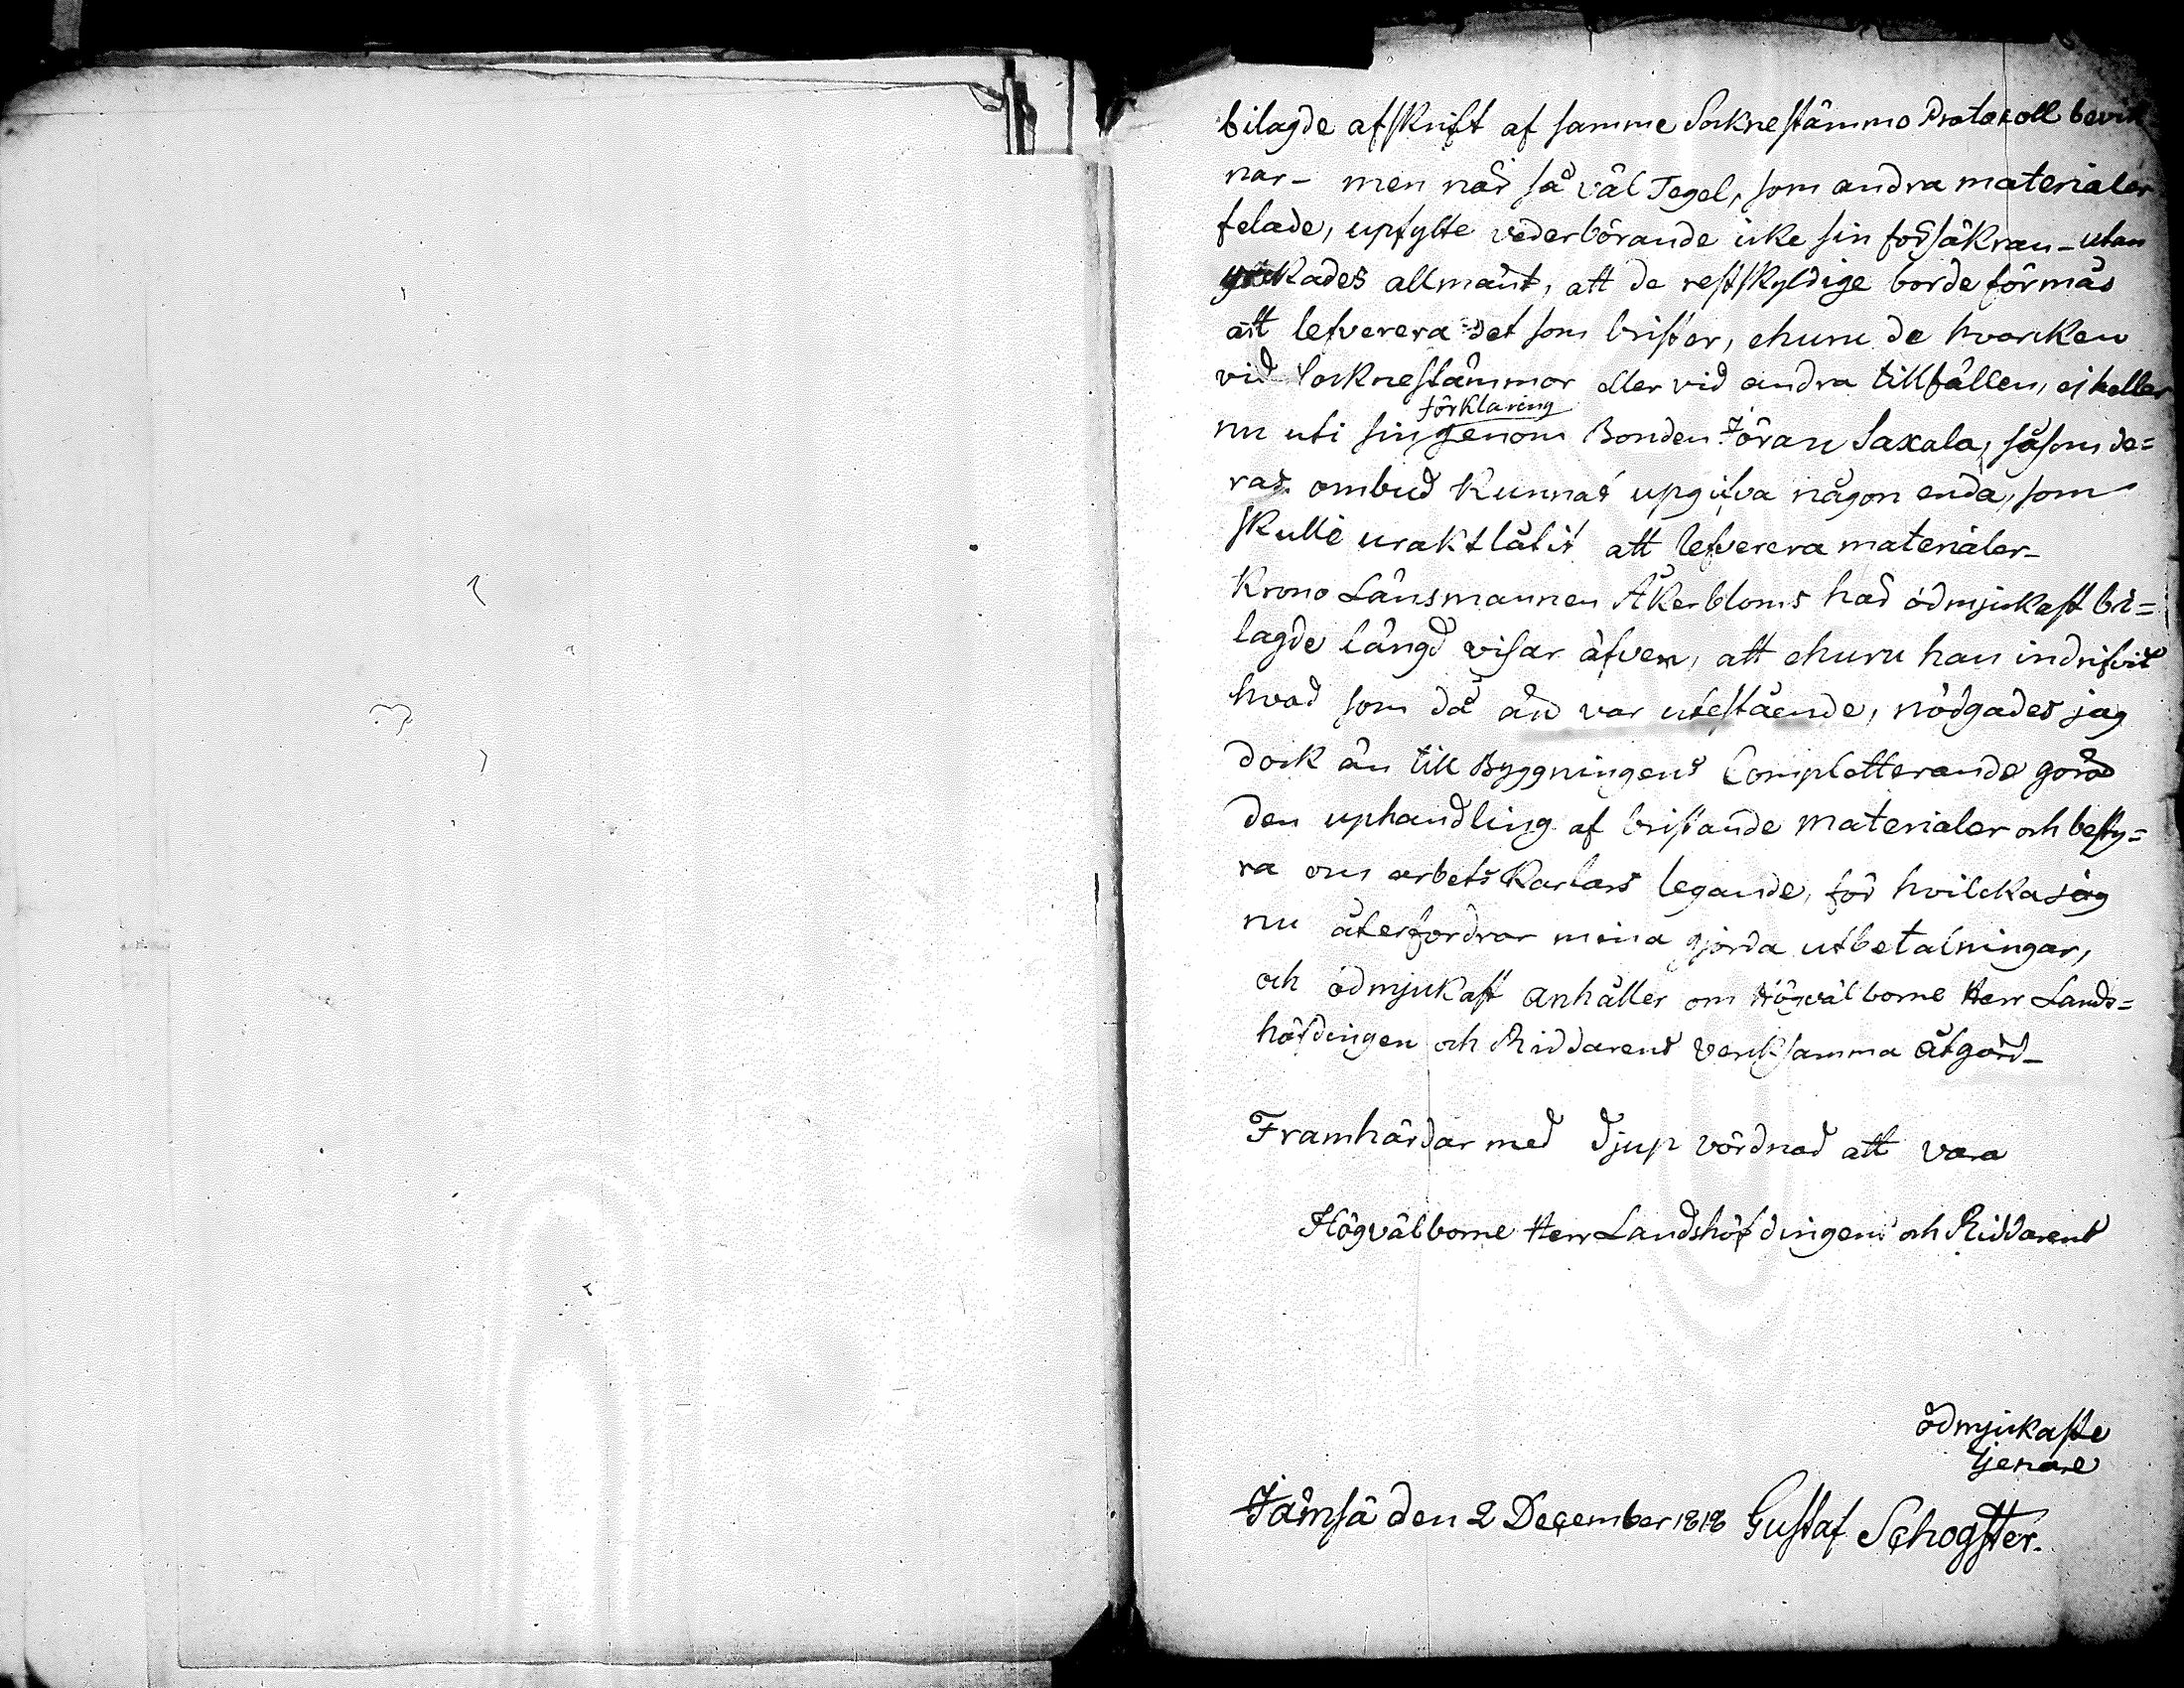 bilagde afskrift af samme Socknestämmo Protocoll bevitt
nar - men när så väl Tegel, som andra materialer
felade, upfylte vederbörande icke sin försäkran - utan
yrckades allmänt, att de restskyldige borde förmås
att lefverera det som brister, ehuru de hvarcken
vid Socknestämmor eller vid andra tillfällen, ej heller
förklaring
nu uti sin genom Bonden Jöran Saxala, såsom de=
ras ombud kunnat upgifva någon enda, som
skulle uraktlåtit att lefverera materialer -
Krono Länsmannen Åkerbloms här ödmjukast bi=
lagde längd visar äfven, att ehuru han indrifvit
hvad som då än var utestående, nödgades jag
dock än till Byggningens Completterande göra
den uphandling af bristande materialer och besty=
ra om arbetskarlars legande, för hvilcka jag
nu återfordrar mina gjorda utbetalningar,
och ödmjukast anhåller om Högvälborne Herr Lands=
höfdingen och Riddarens verksamma åtgärd -
Framhärdar med djup vördnad att vara
Högvälborne Herr Landshöfdingens och Riddarens
ödmjukaste
tjenare
Jämsä den 2 December 1818 Gustaf Schogster.